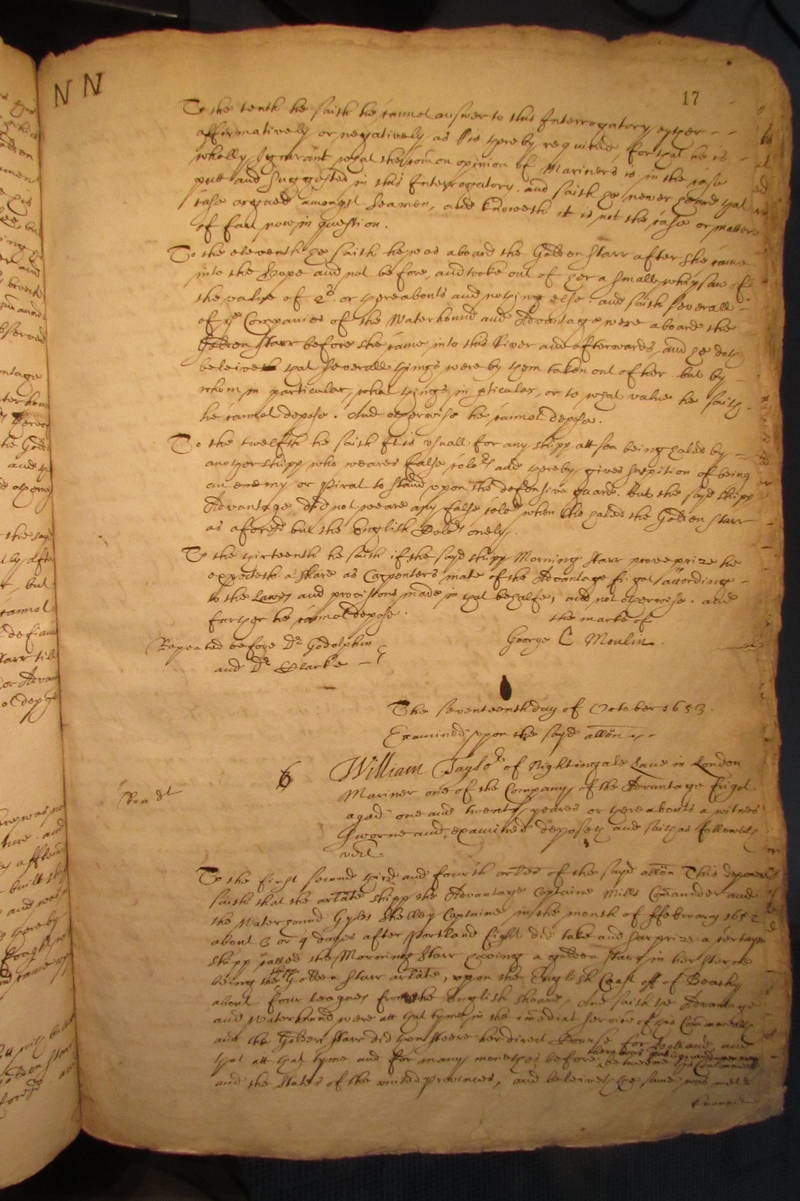 NN
17
To the tenth he saith he cannot answer to this Interrogatory eyther
affirmatively or negatively as hee is thereby required, for that he is
wholly Ignorant what the comon opinion of Mariners is in the case
put and suggested in this Interrogatory. and saith he never heard that
case argued amongst Seamen, and knoweth it is not the case or matter
of fact now in question.
To the eleventh he saith he was aboard the Golden Starr after she came
into the Hope and not before, and tooke out of her a small whip saw of
the value of 2s or thereabouts and nothing else and saith severall
of ye Companies of the Waterhound and Advantage were aboard the
Golden Starr before she came into this River and afterwards, and he doth
beleive that severall things were by them taken out of her but by
whom in particular, what things in pticular, or to what value he saith
he cannot depose. And otherwise he cannot depose.
To the twelfth he saith it is usuall for any shipp att sea being haled by
another shipp who weares false colrs and thereby gives suspition of being
an enemy or Pirat to stand upon the defensive guard. But the sayd shipp
Advantage did not weare any false colrs when she haled the Golden Starr
as aforesd but the English Colrs onely.
To the thirteenth he saith if the sayd shipp Morning Starr prove prize he
expecteth a share as Carpenters mate of the Advantage frigot according
to the Lawes and provisions made in that behalfe, and not otherwise. and
further he cannot depose.
the marke of
Repeated before Dr Godolphin
George C Moulin.
and Dr Clarke
The seventeenth day of October 1653.
Examined upon the sayd allon
6
William Taylor of Nightingale Lane in London
Mariner one of the Company of the Advantage Frigot
aged one and twenty yeares or thereabouts a witnes
sworne and examined deposeth and saith as followeth
vizt.
To the first second third and fourth arles of the sayd allon This deponent
saith that the arlate shipp the Advantage Captaine Mills Comander and
the Waterhound Gyles Shelley Captaine in the month of ffebruary 1652
about 3 or 4 dayes after Portland Fight did take and surprize a certaine
shipp called the Morning Starr having a golden Starr in her sterne
being the Golden Starr arlate, upon the English Coast off of Beachy
about four leagues from the English shoare, And saith the Advantage
and Waterhound were att that tyme in the imediat service of this Comonwealth
and the Golden Starr did then steere her direct course for Holland, and
that att that tyme and for many monethes before there was
betweene this Comonwealth
and the States of the united provinces, and beleiveth the same was well